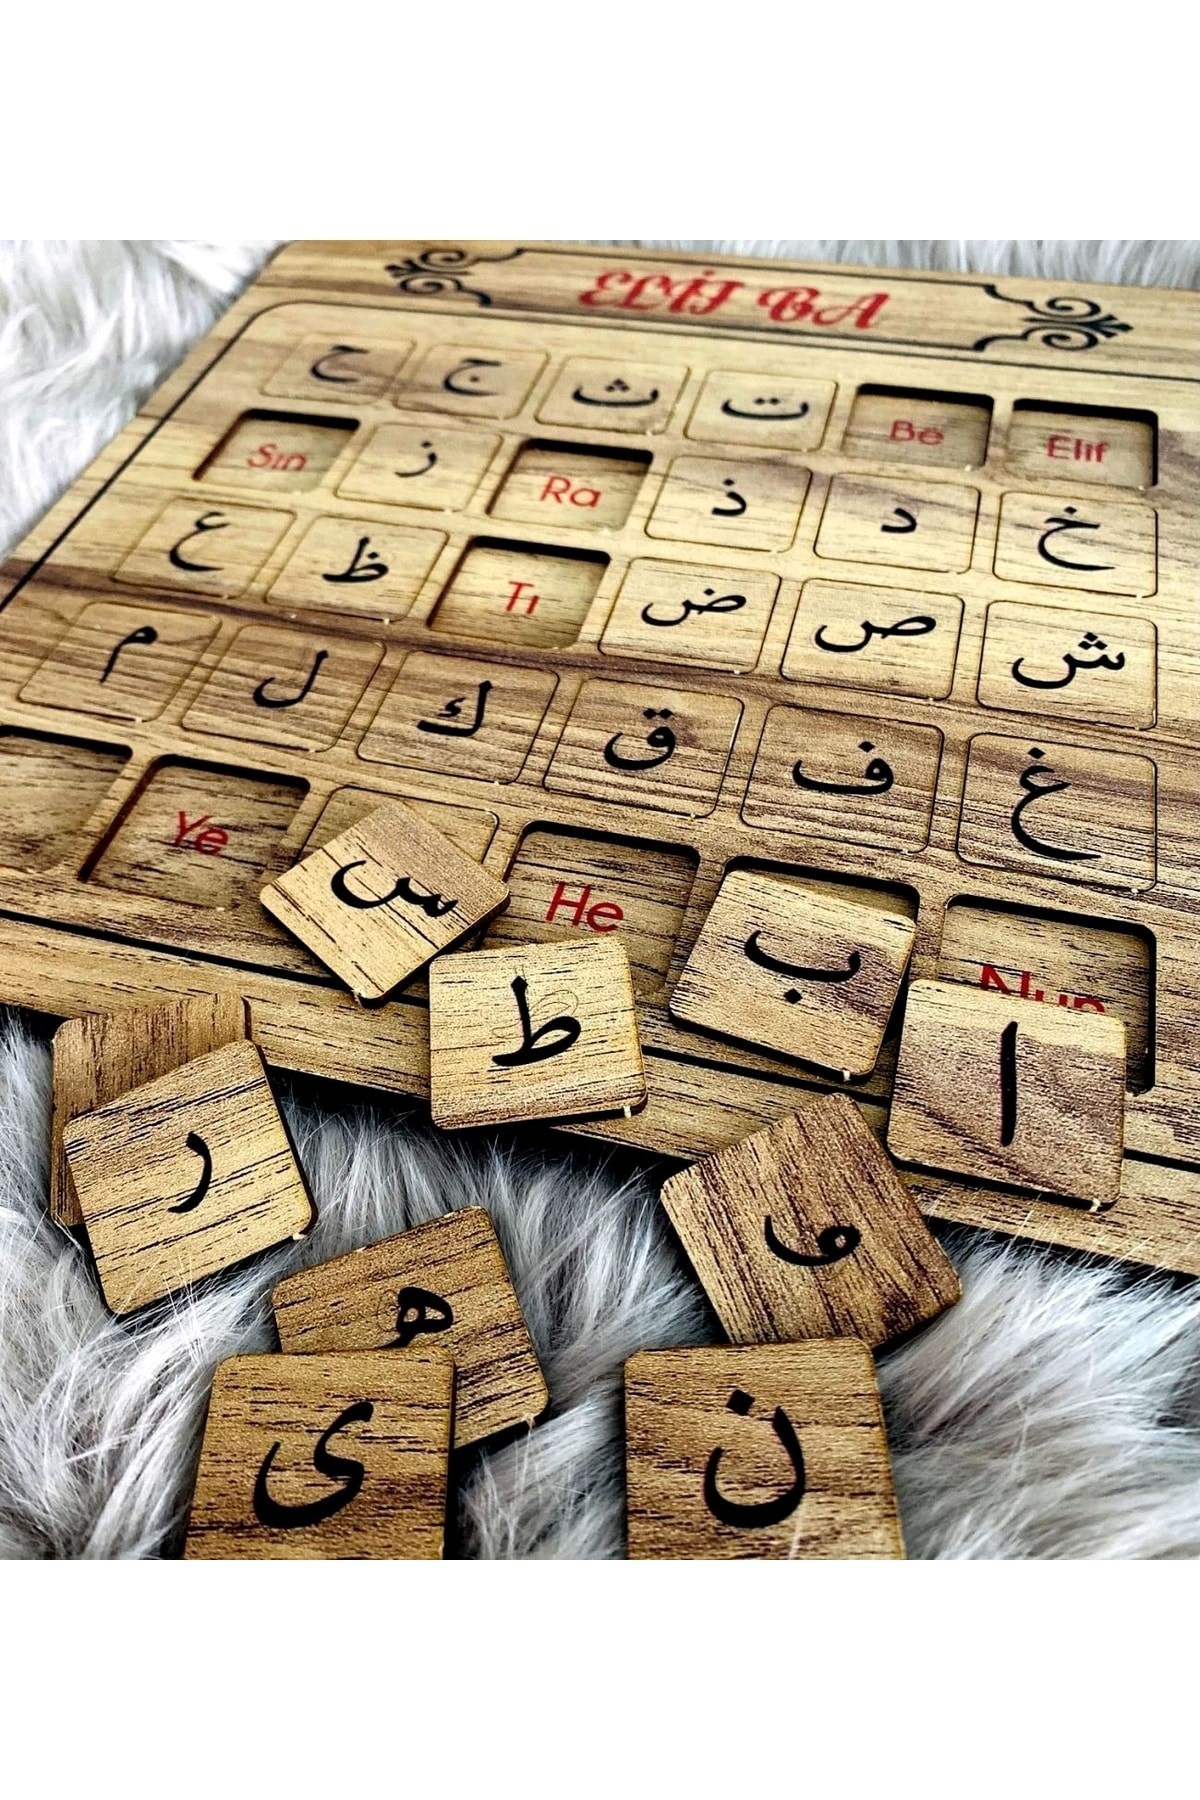 ELİF BA
Elif Be ت ث ج ح
خ د ذ Ra ز Sın
ش ص ض Tı ظ ع
غ ف ق ك ل م
Nun He Ye
ا ب ط س
و ر
ه
ن ى